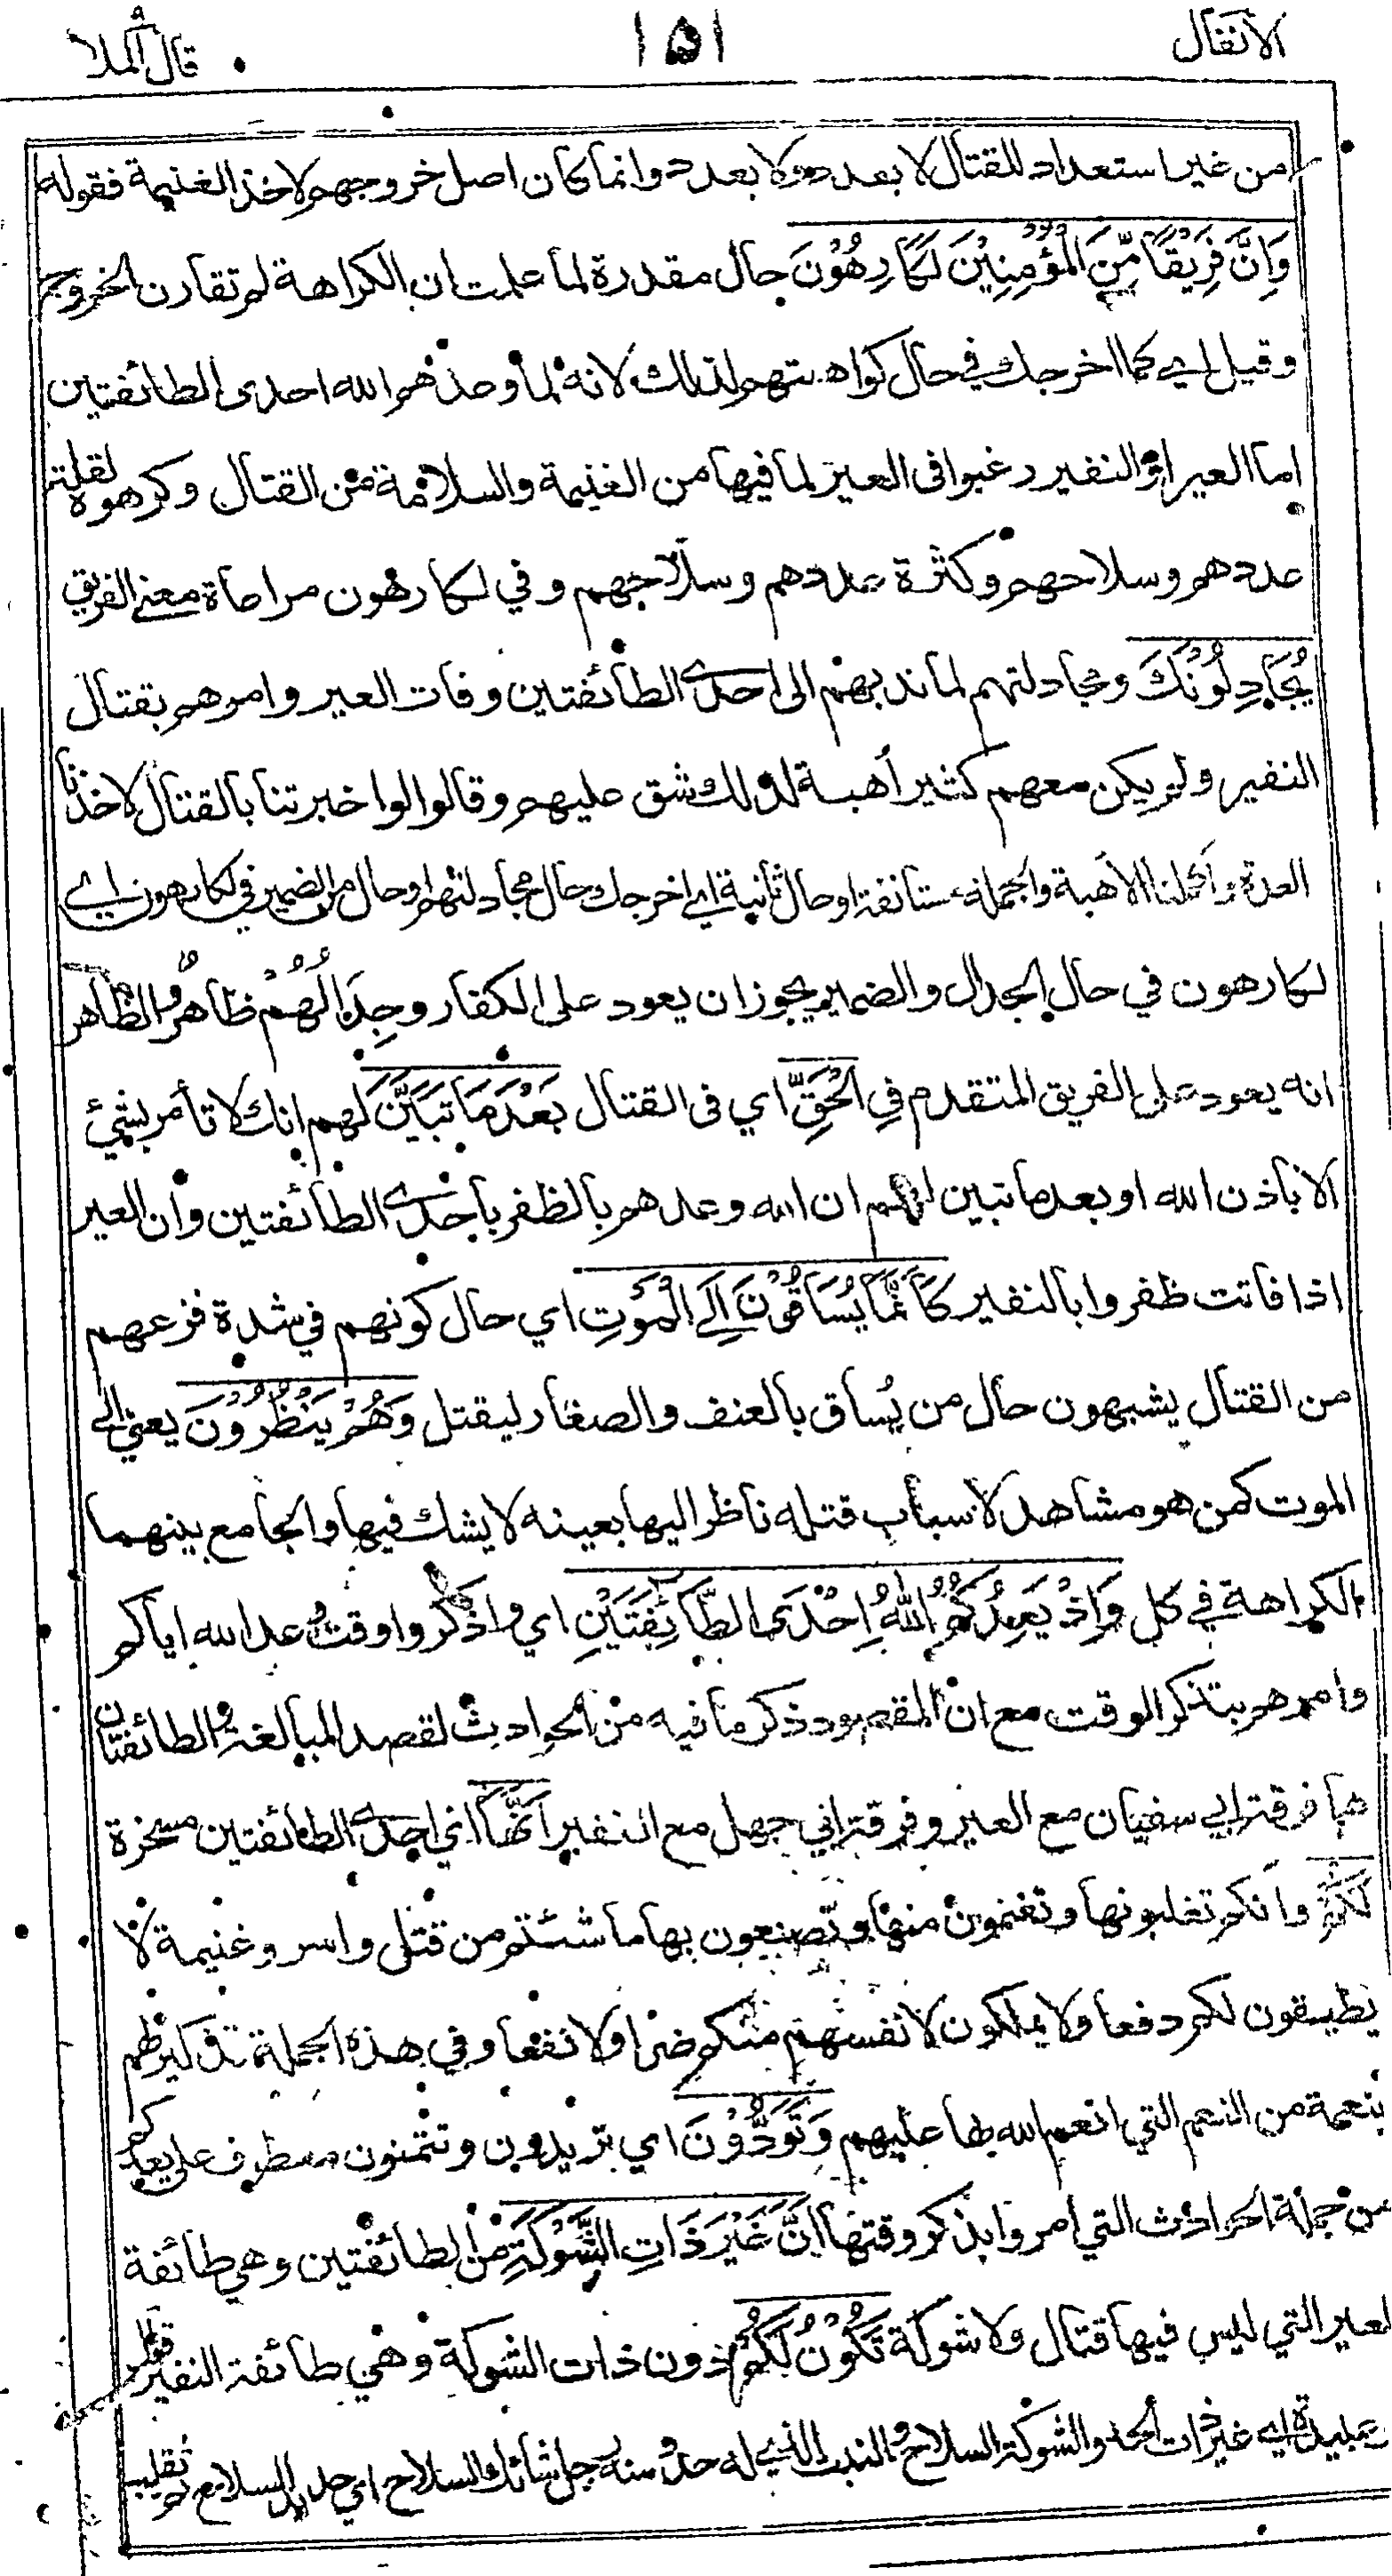 الانفال
١٥١
قال الملا
من غير استعداد للقتال لا بعدد ولا بعدد وانما كان اصل خروجهم لاخذ الغنيمة فقوله
وَاِنَّ فَرِيْقًا مِّنَ الْمُؤْمِنِيْنَ لَكَارِهُوْنَ حال مقدرة لما علمت ان الكراهة لم تقارن الخروج
وقيل اي كما اخرجك في حال كراهتهم لذلك لانه لما وعدهم الله احدى الطائفتين
اما العير او النفير رغبوا فى العير لما فيها من الغنيمة والسلامة من القتال وكرهوه لقلة
عددهم وسلاحهم وكثرة عددهم وسلاحهم وفي لكارهون مراعاة معنى الفريق
يُجَادِلُوْنَكَ ومجادلتهم لما ندبهم الى احدى الطائفتين وفات العير وامرهم بقتال
النفير ولم يكن معهم كثير أهبة لذلك شق عليهم وقالوا لوا خبرتنا بالقتال لاخذنا
العدة واكملنا الأهبة والجملة مستانفة او حال ثانية اي اخرجك حال مجادلتهم او حال من الضمير في لكارهون اي
لكارهون في حال الجدال والضمير يجوز ان يعود على الكفار وجِدَالُهُمْ ظاهرٌ والظاهر
انه يعود على الفريق المتقدم فِي الْحَقِّ اي فى القتال بَعْدَ مَا تَبَيَّنَ لهم انك لا تأمر بشيئ
الا باذن الله او بعد ما تبين لهم ان الله وعدهم بالظفر باحدى الطائفتين وان العير
اذا فاتت ظفروا بالنفير كَاَنَّمَا يُسَاقُوْنَ اِلَى الْمَوْتِ اي حال كونهم في شدة فزعهم
من القتال يشبهون حال من يُساق بالعنف والصغار ليقتل وَهُمْ يَنْظُرُوْنَ يعني الى
الموت كمن هو مشاهد لاسباب قتله ناظر اليها بعينه لا يشك فيها والجامع بينهما
الكراهة في كل وَاِذْ يَعِدُكُمُ اللّٰهُ اِحْدَى الطَّائِفَتَيْنِ اي واذكروا وقت وعد الله اياكم
وامرهم بتذكر الوقت مع ان المقصود ذكر ما فيه من الحوادث لقصد المبالغة والطائفتان
هما فرقة ابي سفيان مع العير وفرقة ابي جهل مع النفير اَنَّهَا اي احدى الطائفتين مسخرة
لَكُمْ وانكم تغلبونها وتغنمون منها وتصنعون بها ما شئتم من قتل واسر وغنيمة لا
يطيقون لكم دفعا ولا يملكون لانفسهم منكم ضرا ولا نفعا وفي هذه الجملة تذكير لهم
بنعمة من النعم التي انعم الله بها عليهم وَتَوَدُّوْنَ اي تريدون وتتمنون معطوف على يعدكم
من جملة الحوادث التي امروا بذكر وقتها اَنَّ غَيْرَ ذَاتِ الشَّوْكَةِ من الطائفتين وهي طائفة
لعير التي ليس فيها قتال ولا شوكة تَكُوْنُ لَكُمْ دون ذات الشوكة وهي طائفة النفير
غير ذات الحد والشوكة السلاح والنبت الذي له حد ومنه رجل شائك السلاح اي حديد السلاح